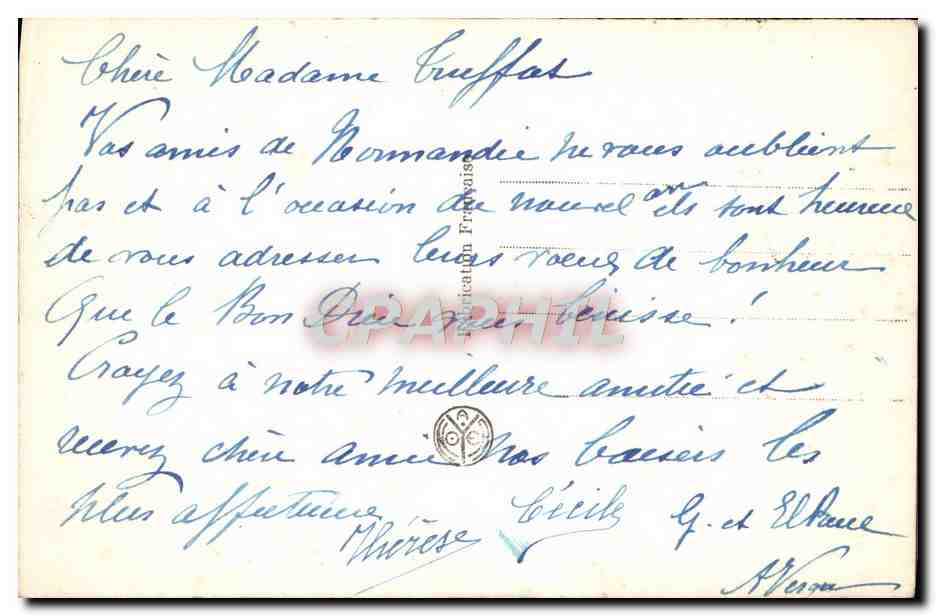 Chère Madame Truffot
Vos amis de Normandie ne vous oublient
pas et à l'occasion du nouvel an ils sont heureux
de vous adresser leurs voeux de bonheur
Que le Bon Dieu vous bénisse !
Croyez à notre meilleure amitié et
recevez chère amie nos baisers les
plus affectueux
Thérèse
Cécile
G. et
A
Fabrication Française
CPAPHIL